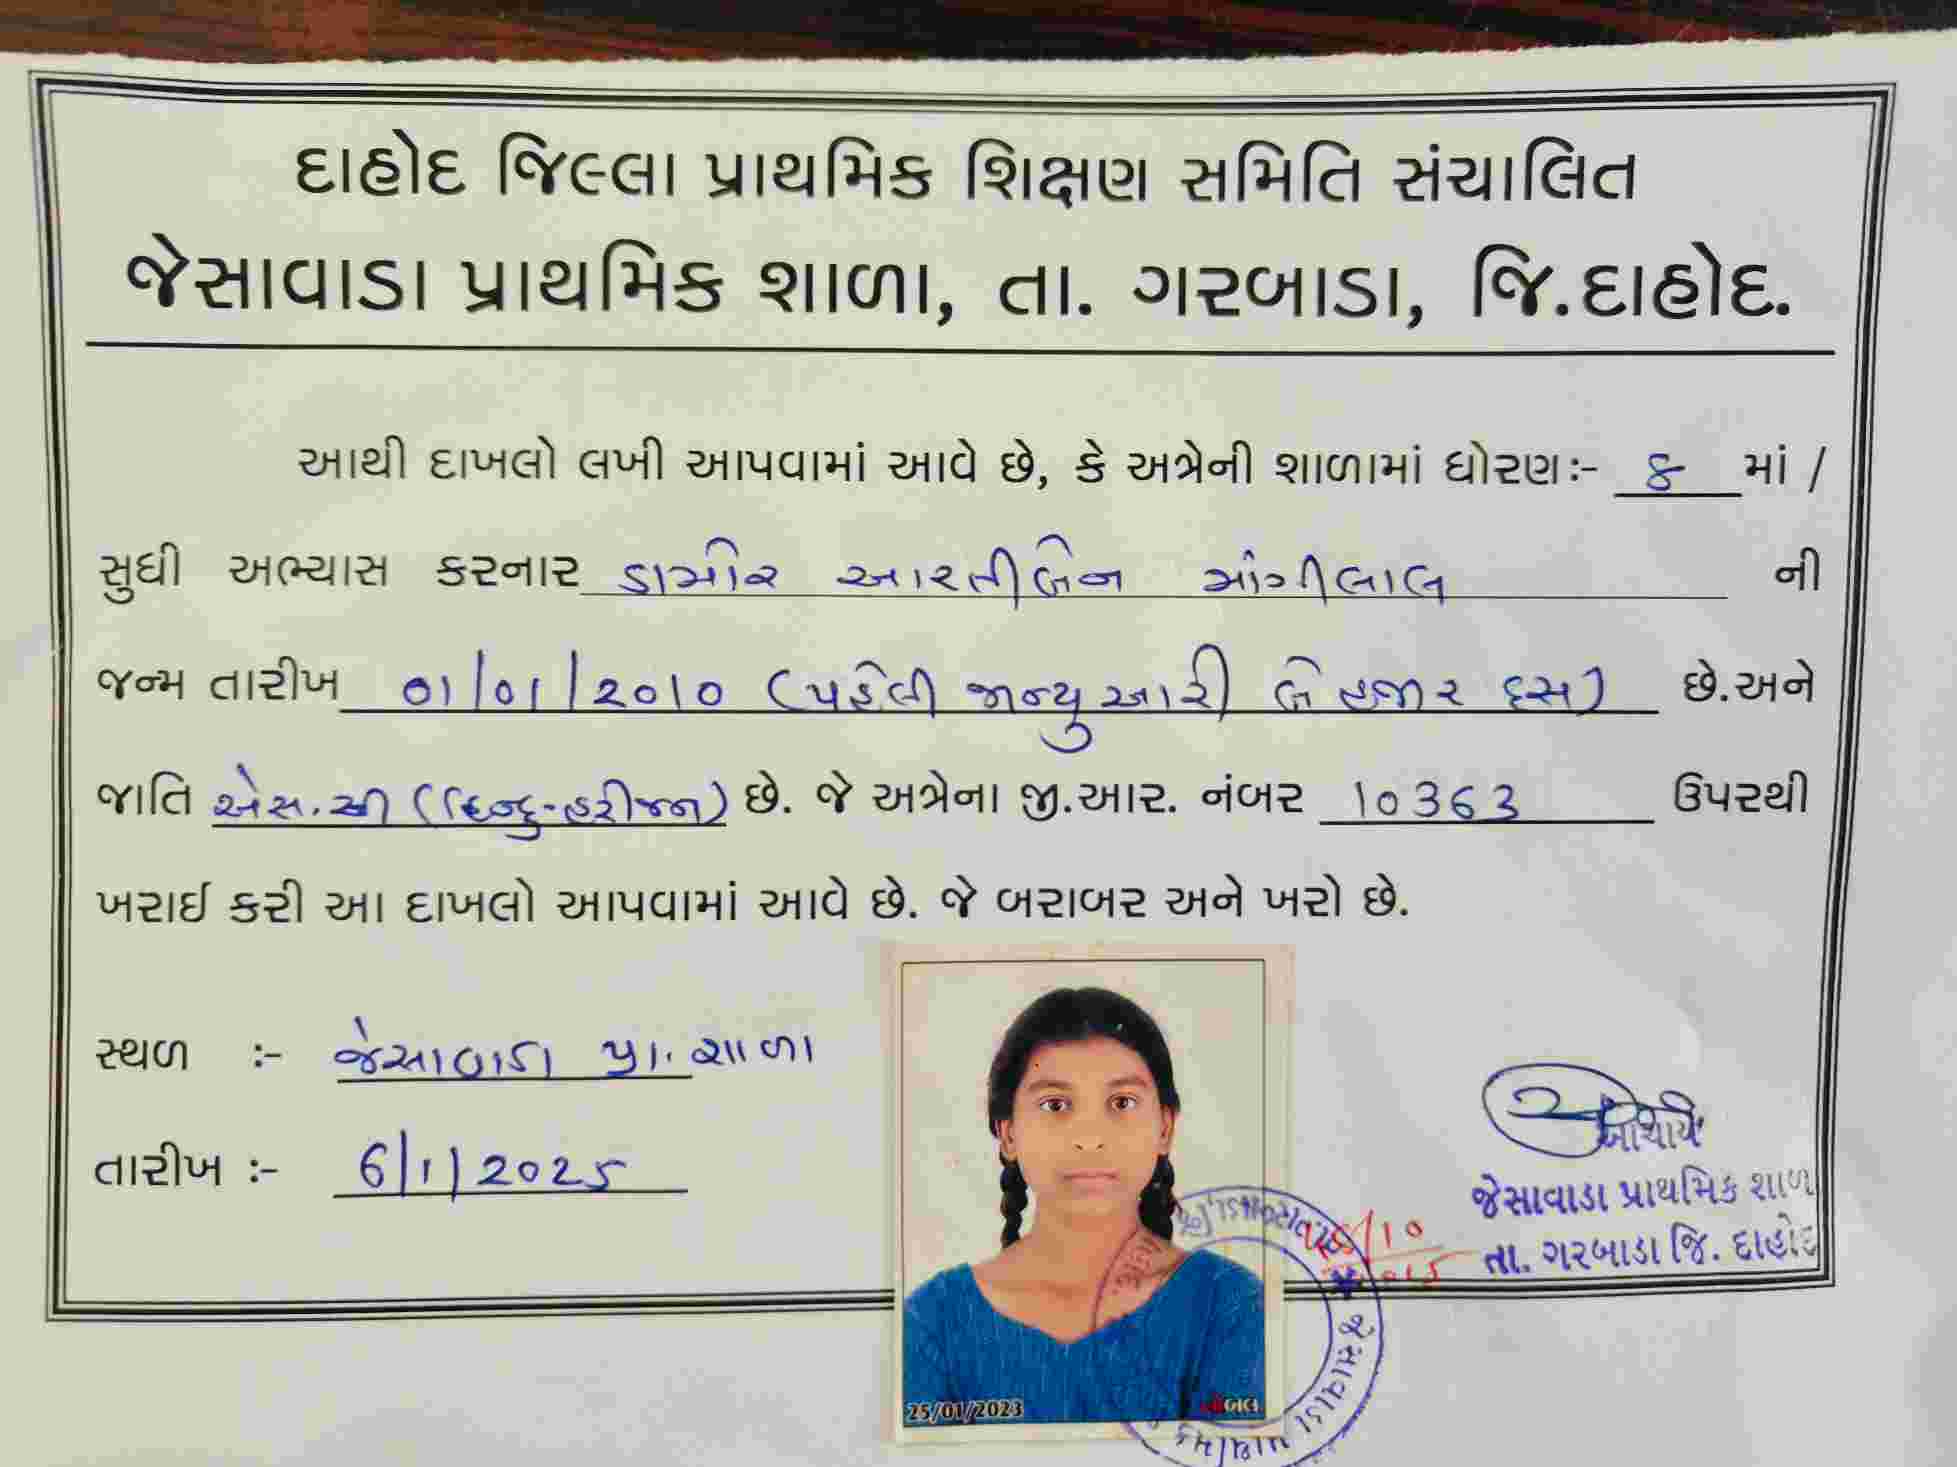 દાહોદ જિલ્લા પ્રાથમિક શિક્ષણ સમિતિ સંચાલિત
જેસાવાડા પ્રાથમિક શાળા, તા. ગરબાડા, જિ.દાહોદ.
આથી દાખલો લખી આપવામાં આવે છે, કે અત્રેની શાળામાં ધોરણઃ- ૪ માં /
સુધી અભ્યાસ કરનાર ડામોર આરતીબેન માંગીલાલ ની
જન્મ તારીખ 01/01/2010 (પહેલી જાન્યુઆરી બે હજાર દસ) છે.અને
જાતિ એસ.સી (હિન્દુ-હરીજન) છે. જે અત્રેના જી.આર. નંબર 10363 ઉપરથી
ખરાઈ કરી આ દાખલો આપવામાં આવે છે. જે બરાબર અને ખરો છે.
સ્થળ :- જેસાવાડા પ્રા. શાળા
તારીખ :- 6/1/2025
આચાર્ય
જેસાવાડા પ્રાથમિક શાળા
તા. ગરબાડા જિ. દાહોદ
25/01/2023
જેસાવાડા પ્રાથમિક